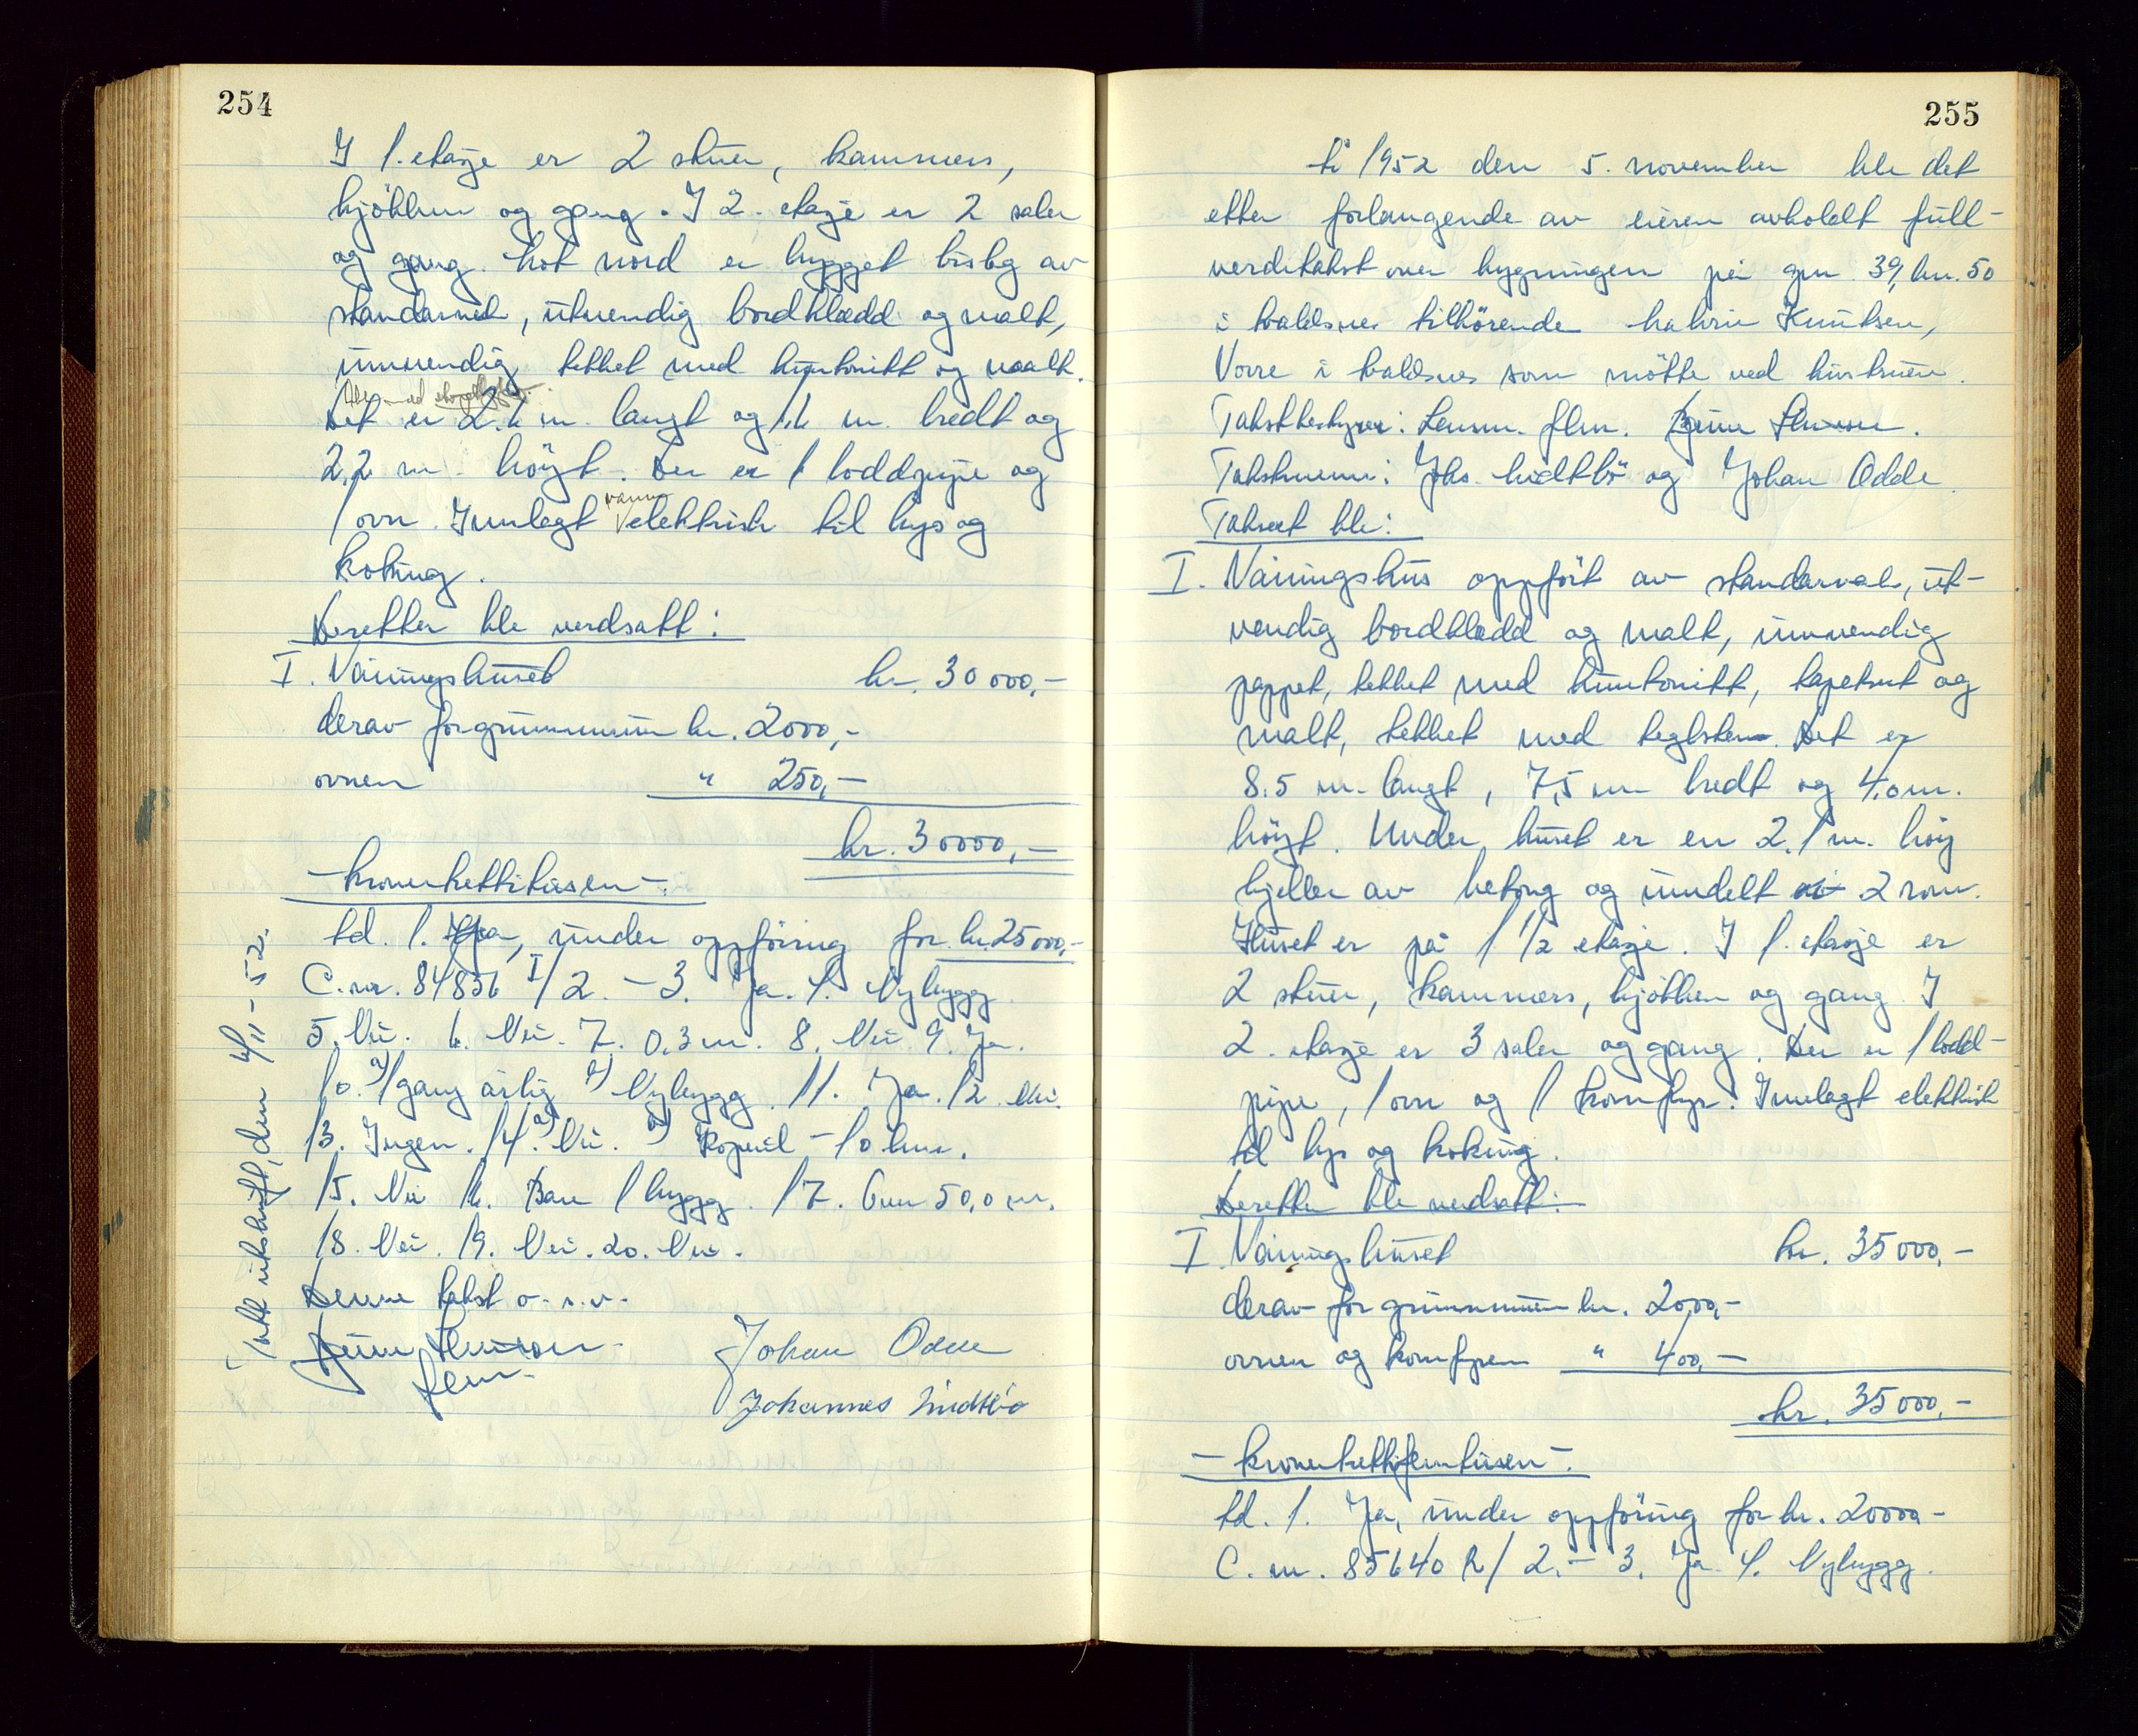 254
I 1. etasje er 2 stuer, kammers,
kjökken og gang. I 2. etasje er 2 saler
og gang. Mot nord er bygget bislag av
standarverk, utvendig bordklædd og malt,
innvendig tekket med huntonitt og malt.
Det er 2.6 m. langt og 1.6 m. bredt og
2,2 m. höyt. Der er 1 loddpipe og
1 ovn. Innlagt vann elektrisk til lys og
koking.
Deretter ble verdsatt:
I. Våningshuset kr. 30 000,-
derav for grunnmuren kr. 2000,-
ovnen " 250,-
kr. 30000,-
td. 1. Ja, under oppföring for kr. 25000,-
C. nr. 84836 I/ 2. - 3. Ja. 4. Nybygg
5. Nei. 6. Nei. 7. 0.3 m. 8. Nei 9. Ja.
10. a) 1 gang årlig b) Nybygg. 11. Ja. 12. Nei.
13. Ingen. 14. a) Nei. b) Kopervik - 10 km.
15. Nei 16. Bare 1 bygg. 17. Over 50,0 m.
18. Nei. 19. Nei. 20. Nei.
Denne takst o. s. v.
Johan Odde
Johannes Midtbö
Takst utskrift, den 4/11-52.
255
År 1952 den 5. november ble det
etter forlangende av eieren avholdt full-
verditakst over bygningen på gnr. 39, bnr. 50
i Avaldsnes tilhörende Knutsen,
Vorre i Avaldsnes som mötte ved hustruen.
Takstbestyrer: Lensm. flm.
Takstmenn: Johs. Midtbö og Johan Odde.
Taksert ble:
I. Våningshus oppfört av standarverk, ut-
vendig bordklædd og malt, innvendig
pappet, tekket med huntonitt, tapetsert og
malt, tekket med teglsten. Det er
8.5 m. langt, 7,5 m bredt og 4.0 m.
höyt. Under huset er en 2.1 m. höy
kjeller av betong og inndelt i 2 rom.
Huset er på 1 1/2 etasje. I 1. etasje er
2 stuer, kammers, kjökken og gang. I
2. etasje er 3 saler og gang. Der er 1 lodd-
pipe, 1 ovn og 1 komfyr. Innlagt elektrisk
til lys og koking.
Deretter ble verdsatt:
I Våningshuset kr. 35 000,-
derav for grunnmuren kr. 2000,-
ovnen og komfyren " 400,-
kr. 35000,-
td. 1. Ja, under oppföring for kr. 20000-
C. nr. 85640 R/ 2. - 3. Ja. 4. Nybygg.